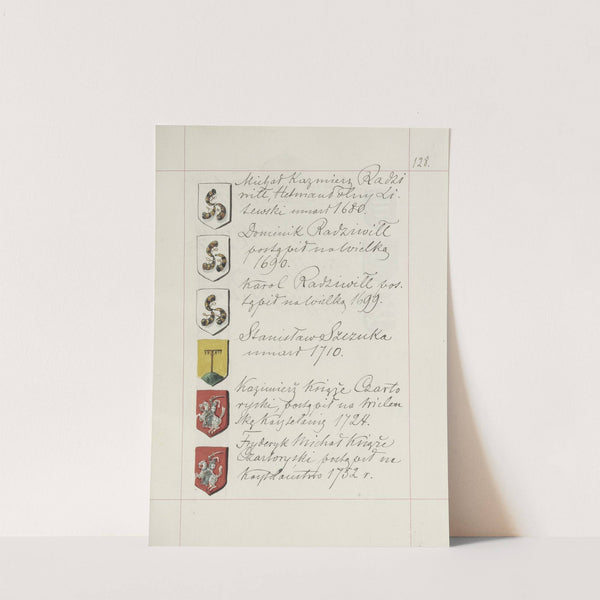 128.
Michał Kazimierz Radzi
wiłł, Hetman Polny Li
tewski umarł 1680.
Dominik Radziwiłł
postąpił na Wielką
1690.
Karol Radziwiłł pos-
tąpił na Wielką 1699.
Stanisław Szczuka
umarł 1710.
Kazimierz Książe Czarto
ryski, postąpił na Wileń
ską Kasztelanię 1724.
Fryderyk Michał Książe
Czartoryski postąpił na
1732 r.